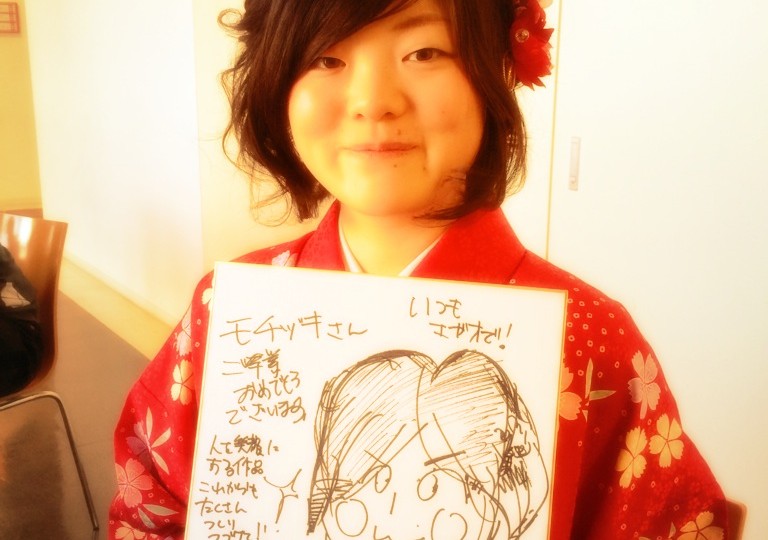 モチヅキさん
いつも
えがおで!
ご卒業
おめでとう
ございます
人を笑顔に
する作品
これからも
たくさん
つくり
つづけて!!